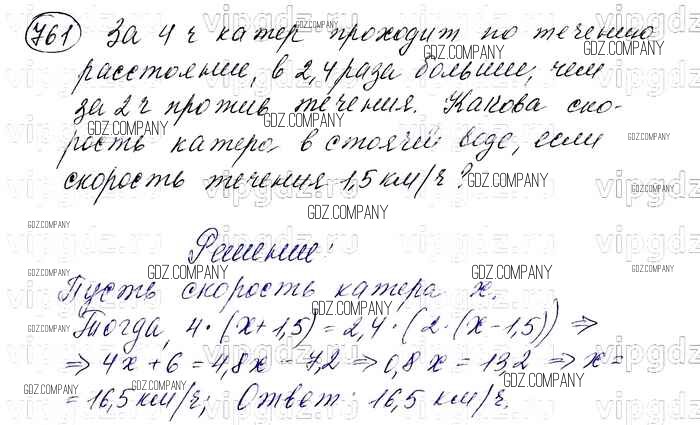 761 За 4 ч катер проходит по течению
расстояние, в 2,4 раза больше, чем
за 2 ч против течения. Какова ско-
рость катера в стоячей воде, если
скорость течения 1,5 км/ч?
Решение:
Пусть скорость катера x.
Тогда, 4·(x+1,5)=2,4·(2·(x-1,5)) ⇒
⇒ 4x+6=4,8x-7,2 ⇒ 0,8x=13,2 ⇒ x=
=16,5 км/ч; Ответ: 16,5 км/ч.